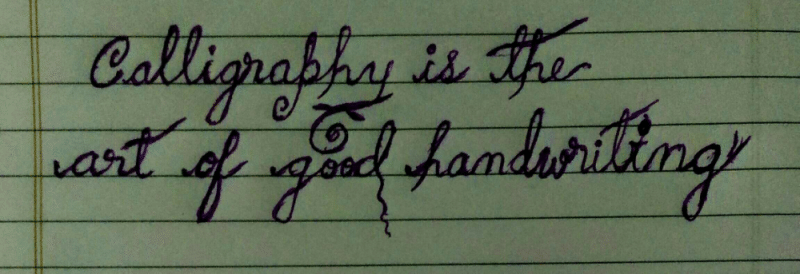 Calligraphy is the
art of good handwriting